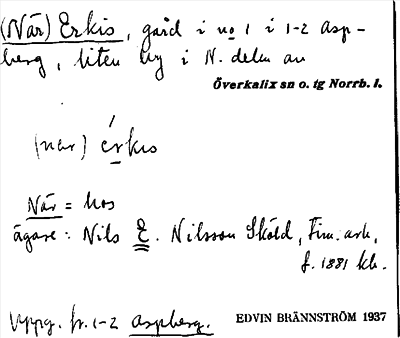 (När) Erkis, gård i no 1 i 1-2 Asp-
berg, liten by i N. delen av
Överkalix sn o. tg Norrb. l.
(nar) érkıs
När = hos
ägare: Nils E. Nilsson Sköld, Tim. arb.,
f. 1881 kb.
Uppg. fr. 1-2 Aspberg.
EDVIN BRÄNNSTRÖM 1937